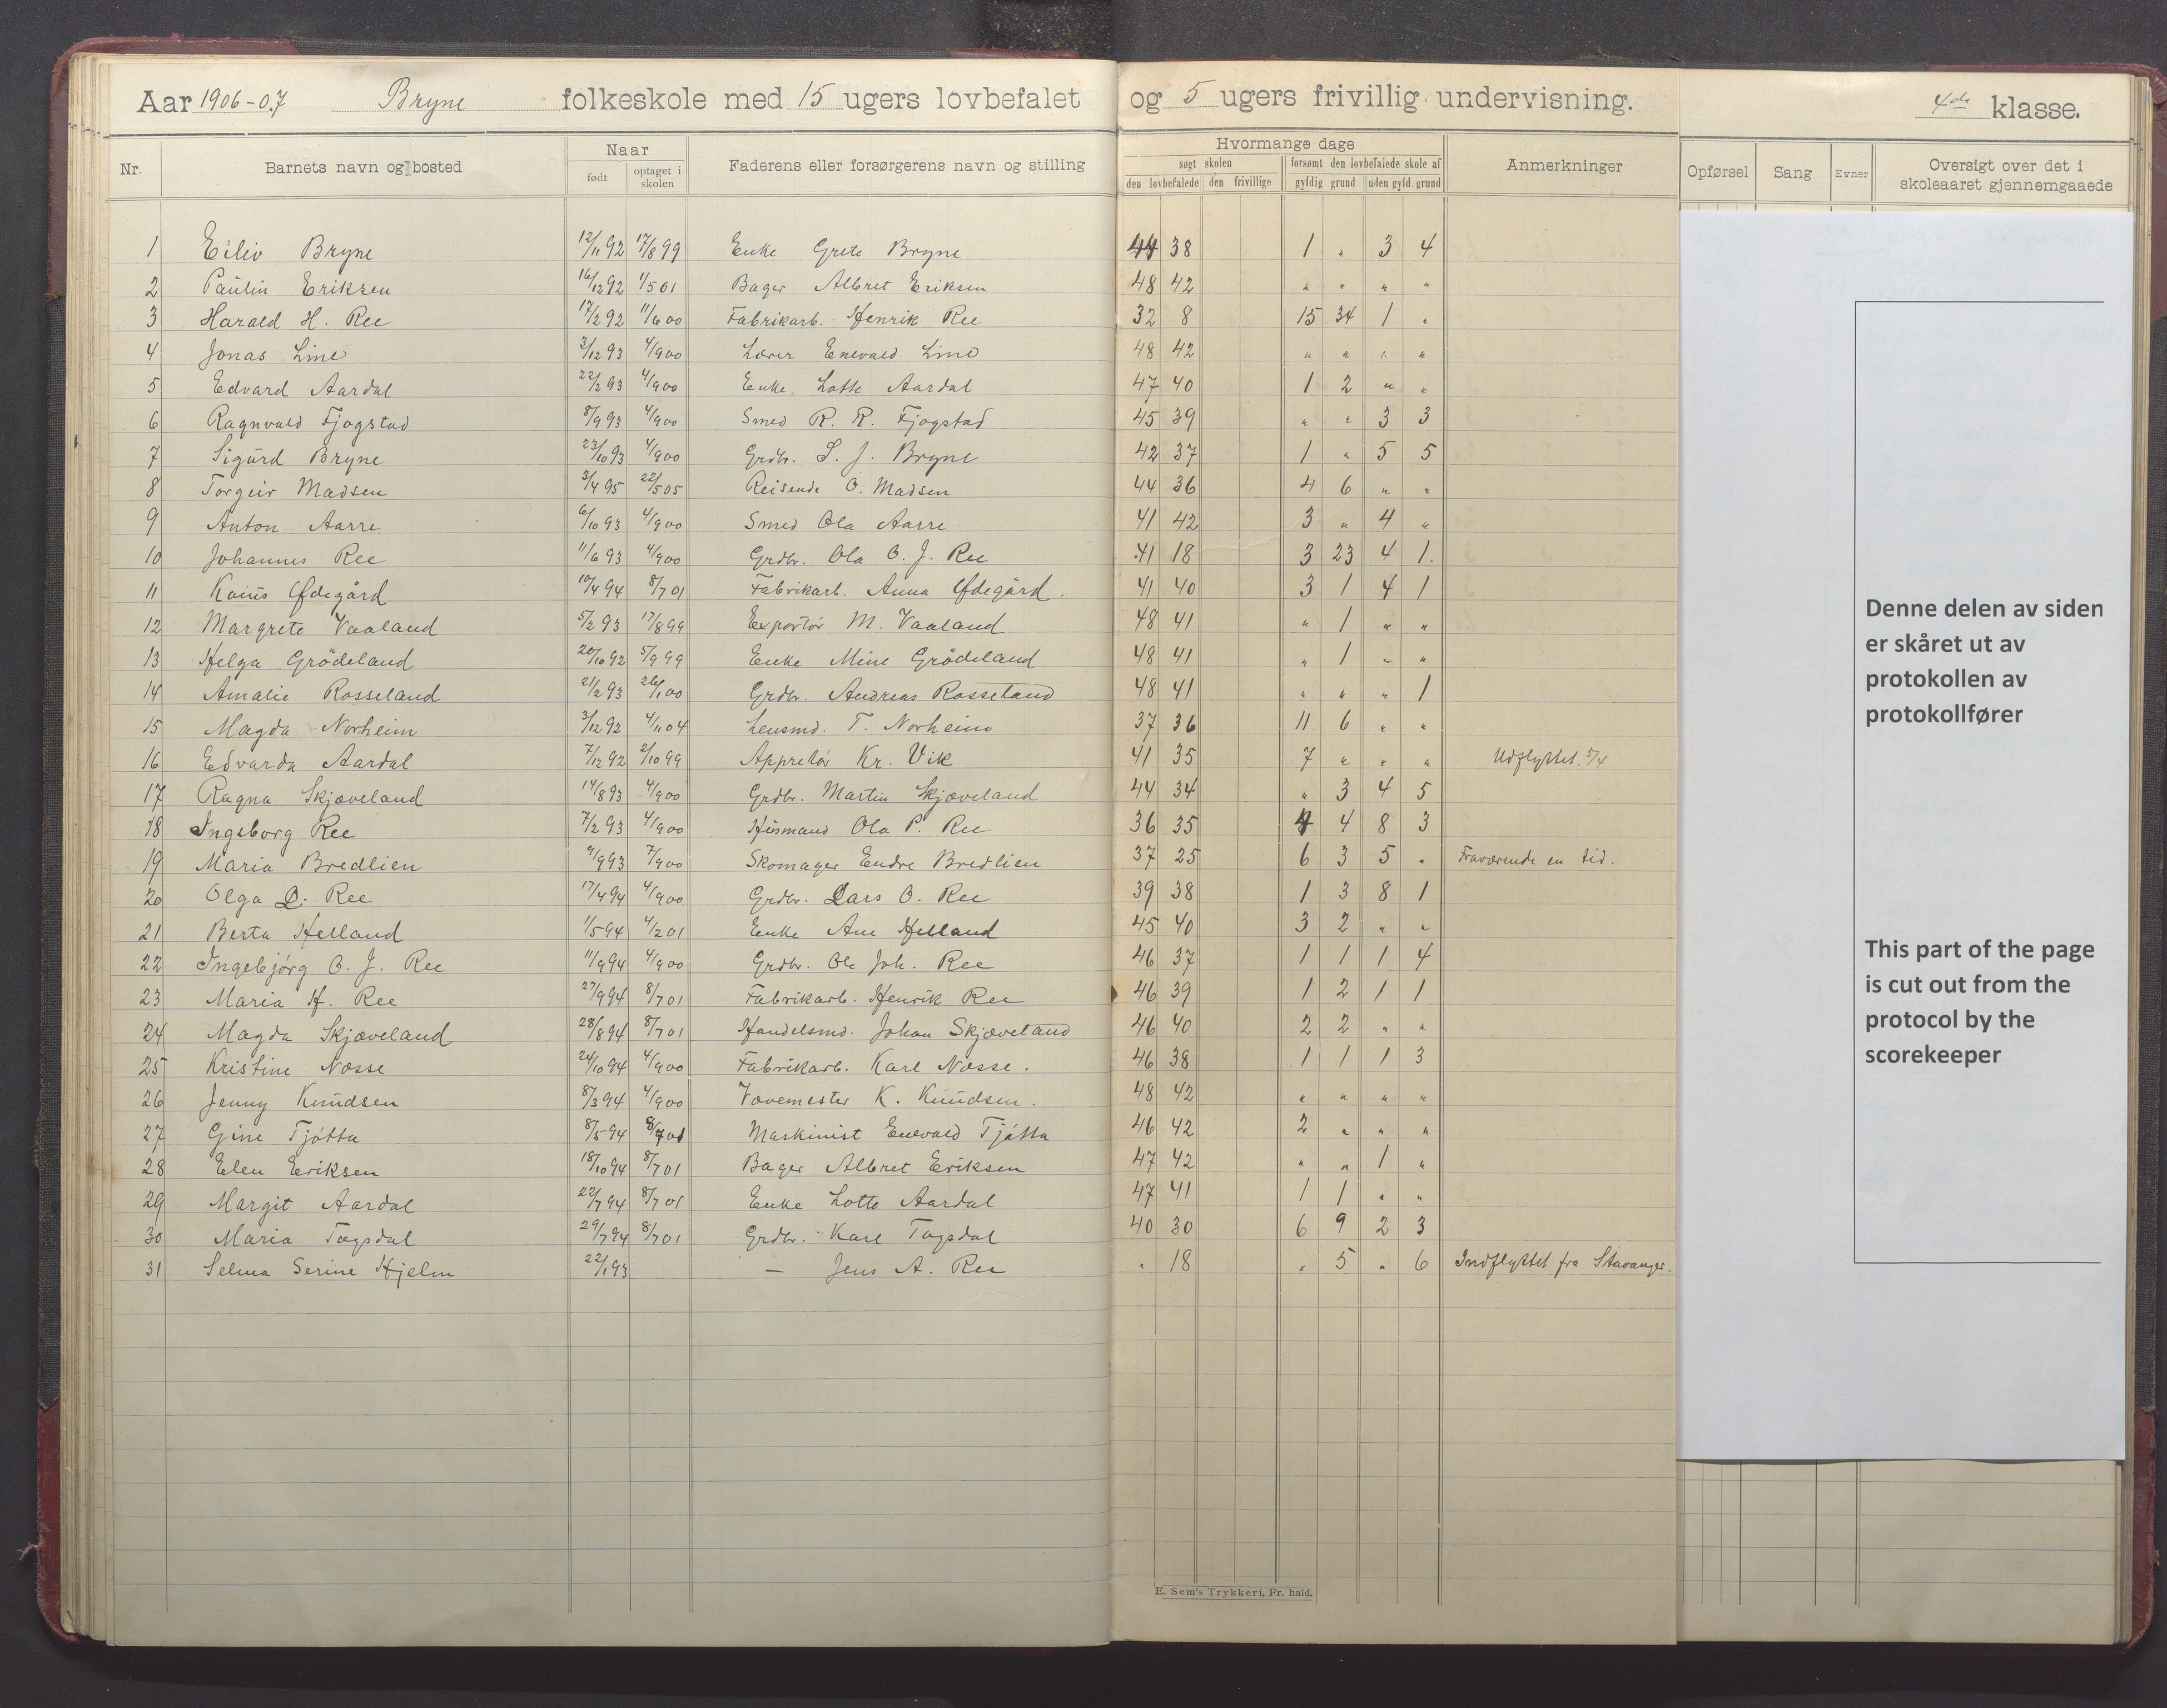 Aar 1906-07 Bryne folkeskole med 15 ugers lovbefalet og 5 ugers frivillig undervisning. 4de klasse.
Nr. Barnets navn og bosted Naar født optaget i skolen Faderens eller forsørgerens navn og stilling Hvormange dage søgt skolen den lovbefalede den frivillige forsømt den lovbefalede skole af gyldig grund uden gyld. grund Anmerkninger Opførsel Sang Evner Oversigt over det i skoleaaret gjennemgaaede
1 Eiliv Bryne 12/11 92 17/8 99 Enke Grete Bryne 44 38 1 " 3 4
2 Paulin Eriksen 16/12 92 1/5 01 Bager Albret Eriksen 48 42 " " " "
3 Harald H. Ree 17/2 92 11/6 00 Fabrikarb. Henrik Ree 32 8 15 34 1 "
4 Jonas Line 3/12 93 4/9 00 Lærer Enevald Line 48 42 " " " "
5 Edvard Aardal 22/2 93 4/9 00 Enke Lotte Aardal 47 40 1 2 " "
6 Ragnvald Fjogstad 8/9 93 4/9 00 Smed R. R. Fjogstad 45 39 " " 3 3
7 Sigurd Bryne 23/10 93 4/9 00 Grdbr. S. J. Bryne 42 37 1 " 5 5
8 Torgeir Madsen 3/4 95 22/5 05 Reisende O. Madsen 44 36 4 6 " "
9 Anton Aarre 6/10 93 4/9 00 Smed Ola Aarre 41 42 3 " 4 "
10 Johannes Ree 11/6 93 4/9 00 Grdbr. Ola O. J. Ree 41 18 3 23 4 1.
11 Kaius Ødegård 10/4 94 8/7 01 Fabrikarb. Anna Ødegård. 41 40 3 1 4 1
12 Margrete Vaaland 5/2 93 17/8 99 Exportör M. Vaaland 48 41 " 1 " "
13 Helga Grödeland 20/10 92 5/9 99 Enke Mine Grödeland 48 41 " 1 " "
14 Amalie Rosseland 21/2 93 26/1 00 Grdbr. Andreas Rosseland 48 41 " " " 1
15 Magda Norheim 3/12 92 4/11 04 Lensmd. T. Norheim 37 36 11 6 " "
16 Edvarda Aardal 7/12 92 2/10 99 Appretör Kr. Vik 41 35 7 " " " Udflyttet 5/4
17 Ragna Skjæveland 14/8 93 4/9 00 Grdbr. Martin Skjæveland 44 34 " 3 4 5
18 Ingeborg Ree 7/2 93 4/9 00 Husmand Ola P. Ree 36 35 4 4 8 3
19 Maria Bredlien 9/9 93 7/9 00 Skomager Endre Bredlien 37 25 6 3 5 " Fraværende en tid.
20 Olga L. Ree 17/4 94 4/9 00 Grdbr. Lars O. Ree 39 38 1 3 8 1
21 Berta Helland 1/5 94 4/2 01 Enke Ane Helland 45 40 3 2 " "
22 Ingebjörg O. J. Ree 11/9 94 4/9 00 Grdbr. Ole Joh. Ree 46 37 1 1 1 4
23 Maria H. Ree 27/9 94 8/7 01 Fabrikarb. Henrik Ree 46 39 1 2 1 1
24 Magda Skjæveland 28/8 94 8/7 01 Handelsmd. Johan Skjæveland 46 40 2 2 " "
25 Kristine Nosse 24/10 94 4/9 00 Fabrikarb. Karl Nosse. 46 38 1 1 1 3
26 Jenny Knudsen 8/3 94 4/9 00 Vævemester K. Knudsen. 48 42 " " " "
27 Gine Tjötta 8/5 94 8/7 01 Maskinist Enevald Tjötta 46 42 2 " " "
28 Elen Eriksen 18/10 94 8/7 01 Bager Albret Eriksen 47 42 " " 1 "
29 Margit Aardal 22/7 94 8/7 01 Enke Lotte Aardal 47 41 1 1 " "
30 Maria Tagsdal 29/7 94 8/7 01 Grdbr. Karl Tagsdal 40 30 6 9 2 3
31 Selma Serine Hjelm 22/1 93 — Jens A. Ree " 18 " 5 " 6 Indflyttet fra Stavanger.
E. Sem's Trykkeri, Fr. hald.
Denne delen av siden
er skåret ut av
protokollen av
protokollfører
This part of the page
is cut out from the
protocol by the
scorekeeper